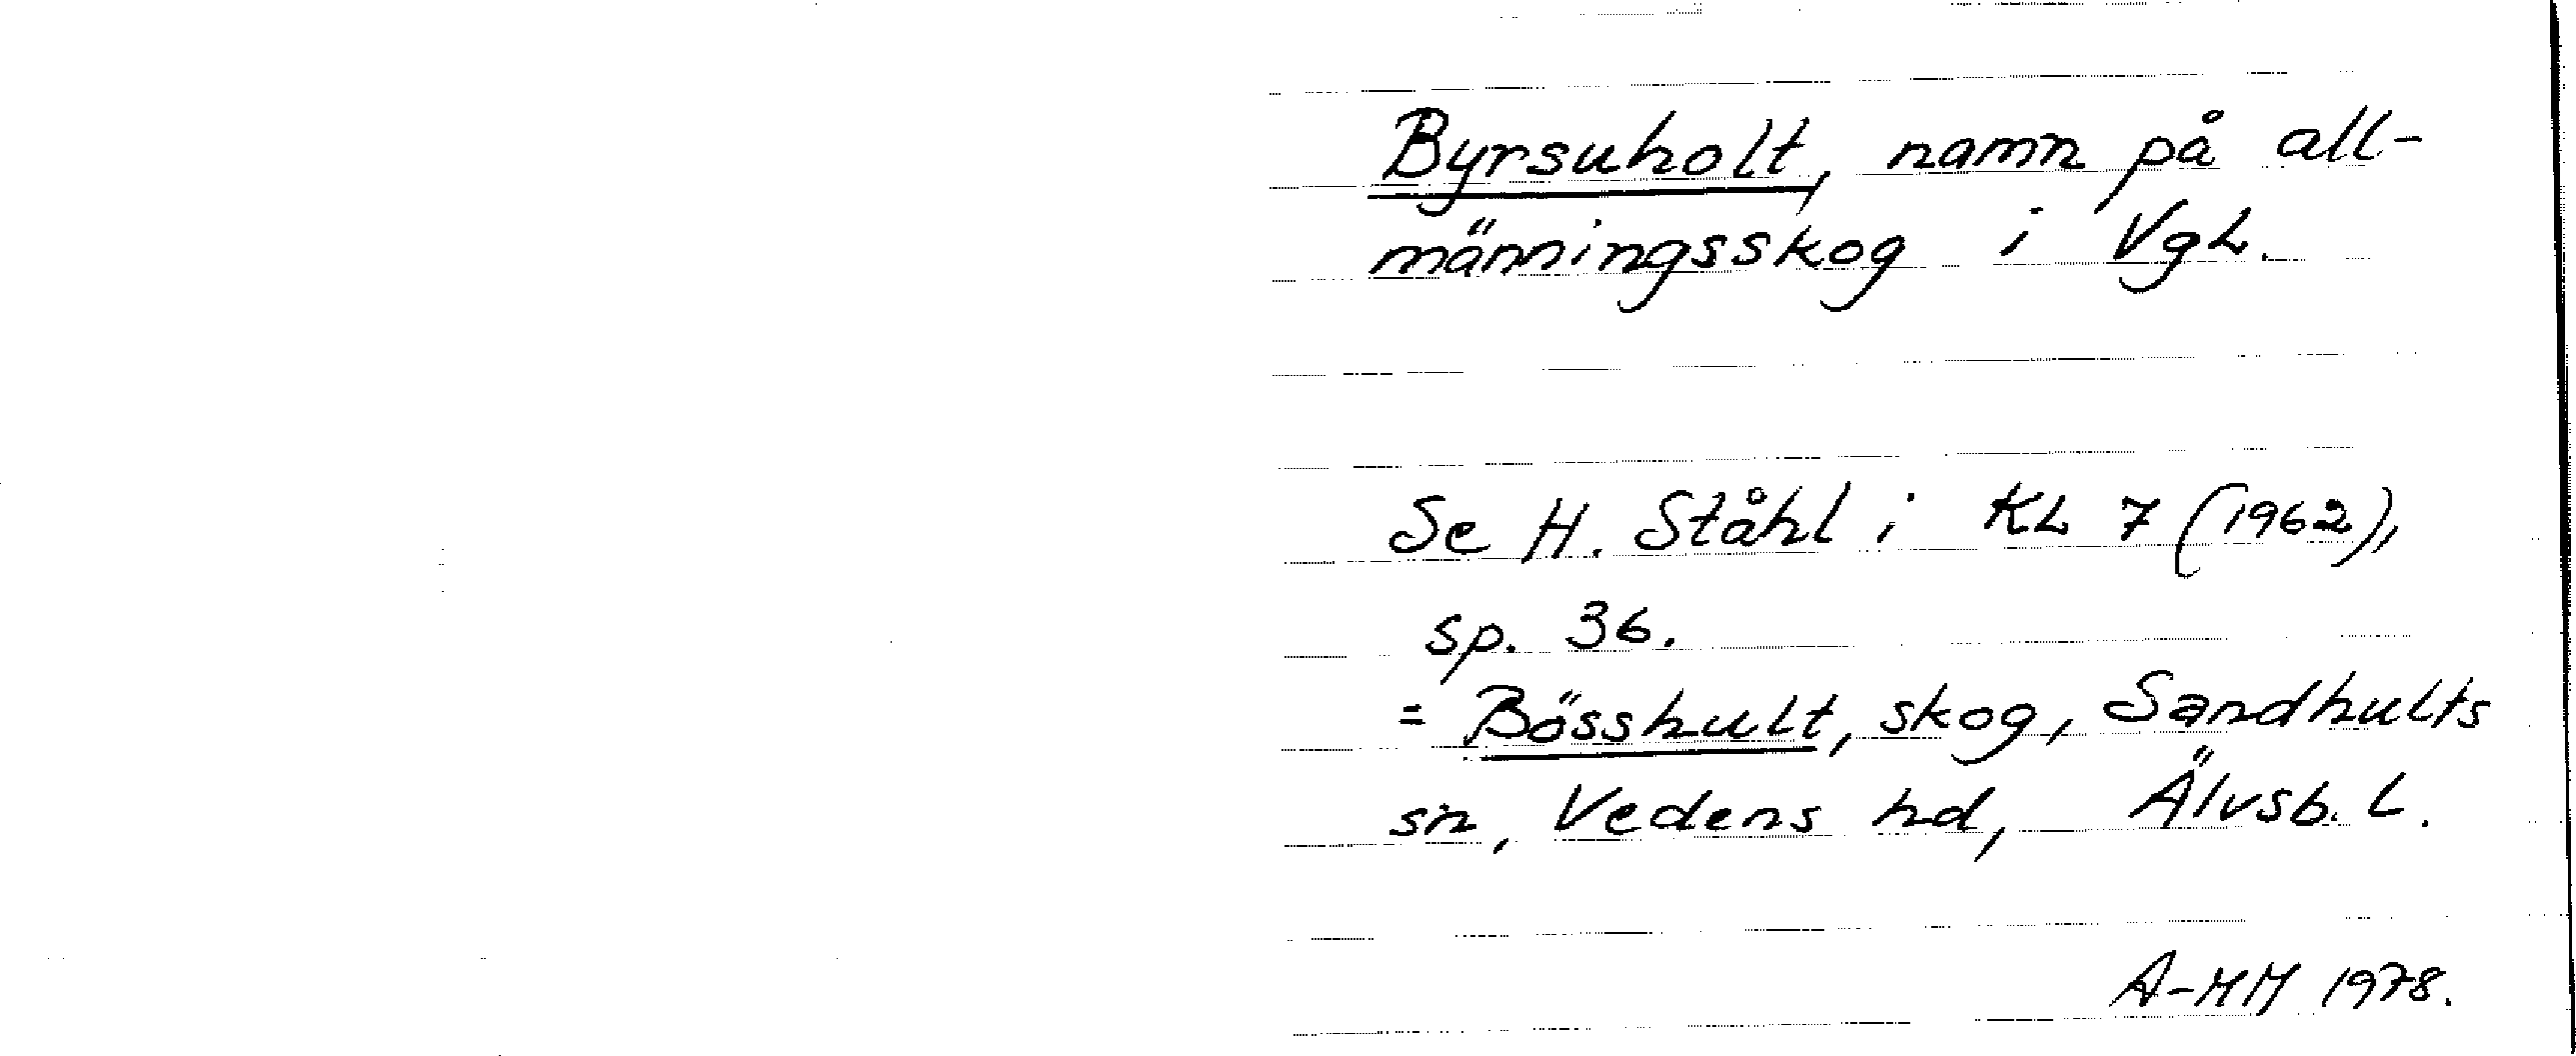 Byrsuholt, namn på all-
männingsskog i VgL.
Se H. Ståhl i KL 7 (1962),
sp. 36.
= Bösshult, skog, Sandhults
sn, Vedens hd, Älvsb. L.
A-MM 1978.